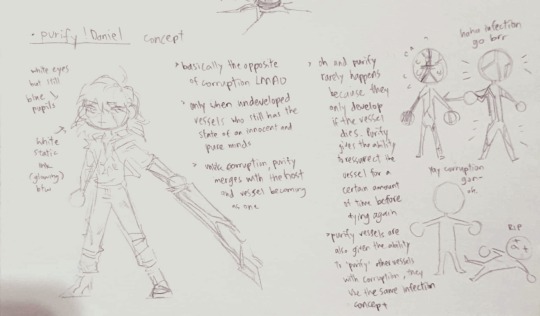 • purify!Daniel concept
white eyes
but still
blue
pupils
white
static
(glowing)
btw
> basically the opposite
of corruption LMAO
> only when undeveloped
vessels who still has the
state of an innocent and
pure minds
> with corruption purity
merges with the host
and vessel becoming
as one
> oh and purify
rarely happens
because they
only develop
if the vessel
dies. Purify
gives the ability
to resurrect the
vessel for a
certain amount
of time before
dying again
> purify vessels are
also given the ability
to "purify" other vessels
with corruption, they
use the same infection
concept
haha infection
go brrr
Yay corruption
gon-
oh.
RIP